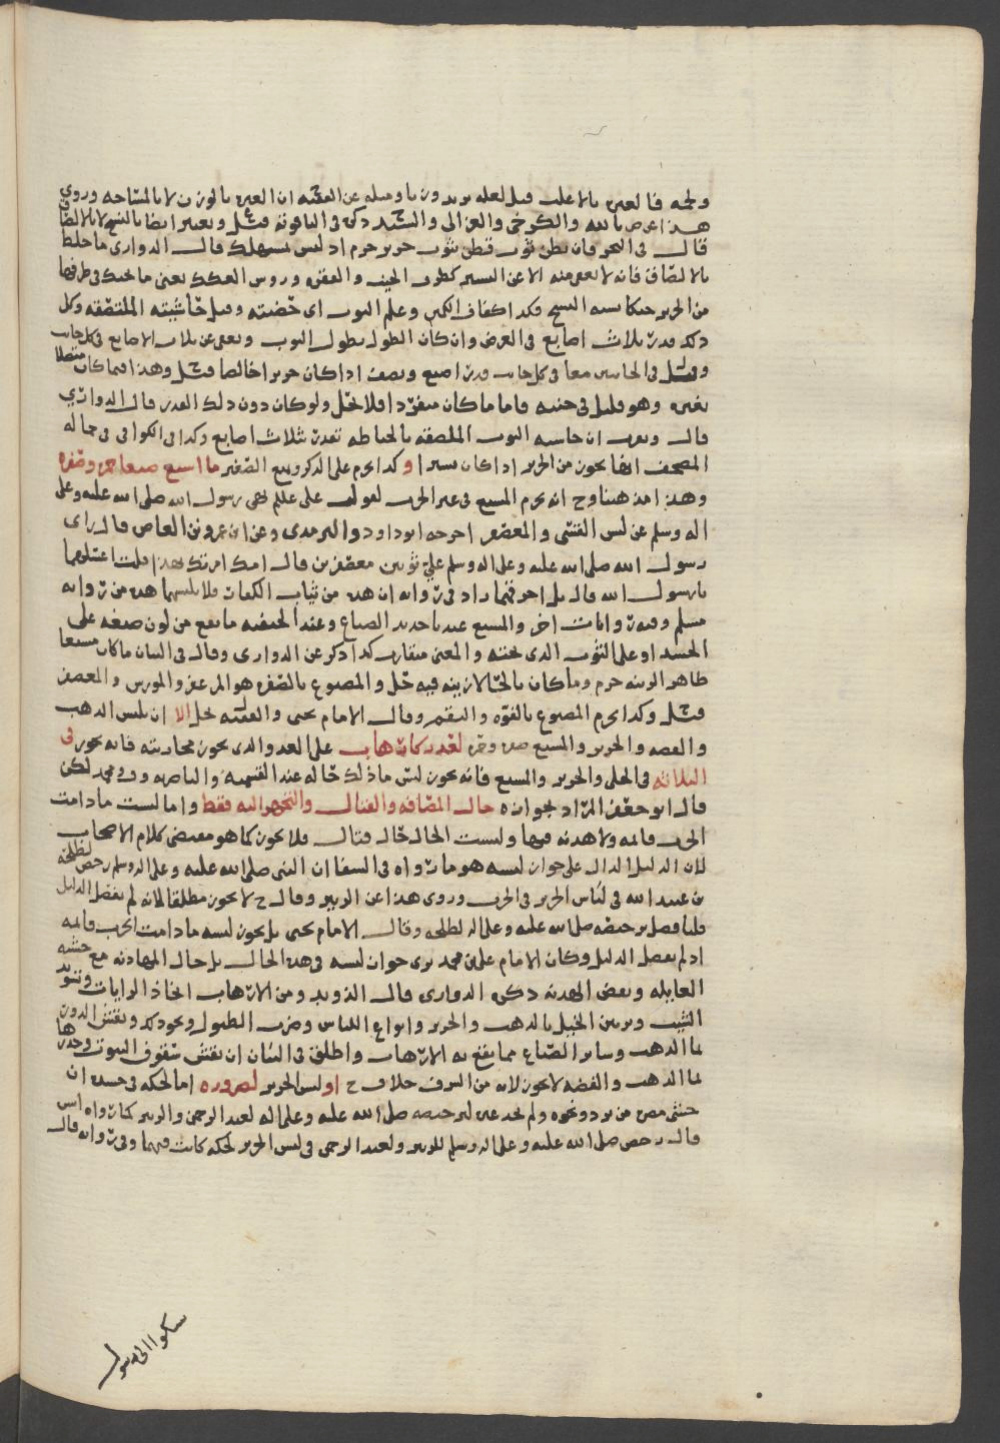 ولحمه فالعبرة بالاغلب قيل لعله يريدون بأوصله عن الفقيه ان العبرة بالوزن لا بالمساحه وروي
هذا عن ض بالله والكرخي والغزالي والسيد ذكره في الياقوته قيل ويعتبر ايضا بالنسج لا بالالصاق
قال في البحر فان بطن ثوب قطن بثوب حرير حرم اذ ليس بمستهلك قال الدواري ما خلط
بالالصاق فانه لا يعفى منه الا عن اليسير كطوق الجيب والفقره وروس العكك يعنى ما يحبك في طرفها
من الحرير حكاية النسج فكذا كفاف الكمين وعلم الثوب اى خضبته وقيل حاشيته الملتصقه وكل
ذلك قدر ثلاث اصابع في العرض وان كان الطول بطول الثوب ويعفى عن ثلاث الاصابع في كل جانب
وقيل في الجانبين معا في كل جانب قدر اصبع ونصف اذا كان حريرا خالصا قيل وهذا فيما كان متصلا
بغيره وهو قليل في جنبه فاما ما كان منفردا فلا يحل ولو كان دون ذلك القدر قال الدواري
قال ويعرف ان حاشيه الثوب الملصقه بالخياطه تقدر بثلاث اصابع وكذا في الكوافي في حماله
المصحف انها تجوز من الحرير اذا كان يسيرا وكذا يحرم على الذكر ومنع الصغير ما اشبع صبغا حمرة وصفره
وهذا من هبنا وح انه يحرم المشبع في غير الحرب لقول على عليلم نهى رسول الله صلى الله عليه وعلى
اله وسلم عن لبس القسي والمعصفر اخرجه ابو داود والترمذى وعن ابن عمرو بن العاص قال راى
رسول الله صلى الله عليه وعلى اله وسلم عليّ ثوبين معصفرين قال امك امرتك بهذا قلت اغسلهما
يا رسول الله قال بل احرقهما زاد في روايه ان هذه من ثياب الكفار فلا تلبسهما هذه من روايه
مسلم وفيه روايات اخر والمشبع عند باحديد الصباغ وعند الحنفيه ما يقع من لون صبغه على
الجسد او على الثوب الذى تحته والمعنى متقارب كذا ذكر عن الدوارى وقال في البيان ما كان مشبعا
ظاهر الزينه حرم وما كان بالخلا لا زينه فيه حل والمصبوغ بالصفره هو المزعفر والمورس والمعصفر
قيل وكذا يحرم المصبوغ بالفوّه والبقم وقال الامام يحيى والفقيه يحل الا ان يلبس الذهب
والفضه والحرير والمشبع صفره وحمره لقصد ارهاب على العدو الذى يجوز محاربته فانه يجوز في
الثلاثه في الحلي والحرير والمشبع فانه يجوز لبس ما ذلك حاله عند القسميه والناصريه وف ومحمد لكن
قال ابو جعفر المراد بجوازه حال المصافه والقتال والتجهز اليه فقط واما ليست ما دامت
الحرب قائمه ولا هدنه فيها وليست الحال حال قتال فلا يجوز كما هو مقتضى كلام الاصحاب
لان الدليل الدال على جواز لبسه هو ما رواه في الشفا ان النبى صلى الله عليه وعلى اله وسلم رخص لطلحه
بن عبيد الله في لباس الحرير في الحرب وروى هذا عن الزبير وقال ح لا يجوز مطلقا لانه لم يفصل الدليل
قلنا فصل ترخيصه صلى الله عليه وعلى اله لطلحه وقال الامام يحيى بل يجوز لبسه ما دامت الحرب قائمه
اذ لم يفصل الدليل وكان الامام على بن محمد يرى جواز لبسه في هذه الحال بل حال المهادنه مع خشيه
الغايله ونقض الهدنه ذكره الدوارى قال الذويد ومن الارهاب اتخاذ الرايات وتسويد
الشيب وتزيين الخيل بالذهب والحرير وانواع اللباس وضرب الطبول ونحو ذلك ونقش الدور
بماء الذهب وساير الصباغ مما يقع به الارهاب واطلق في البيان ان نقش سقوف البيوت وجدرها
بماء الذهب والفضه لا يجوز لانه من السرف خلاف ح او لبس الحرير لضروره اما لحكه في جسده او
خشى مضره من برد ونحوه ولم يجد غيره لترخيصه صلى الله عليه وعلى اله لعبد الرحمن والزبير كما رواه انس
قال رخص صلى الله عليه وعلى اله وسلم للزبير ولعبد الرحمن في لبس الحرير لحكه كانت فيهما وفي روايه قال
شكوا الى رسول